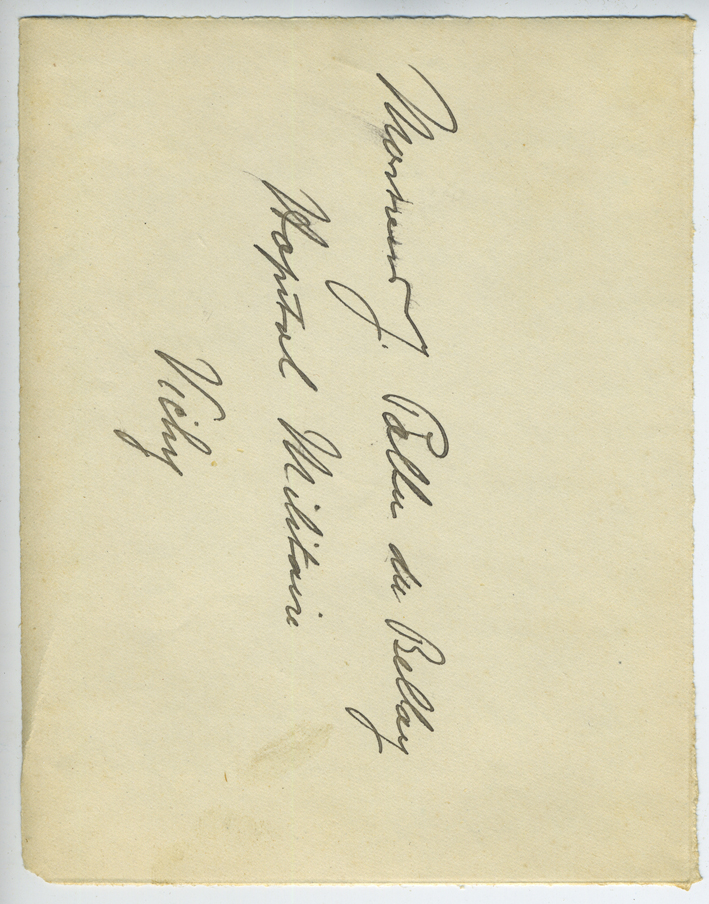 Monsieur J. Pallu du Bellay
Hopital Militaire
Vichy